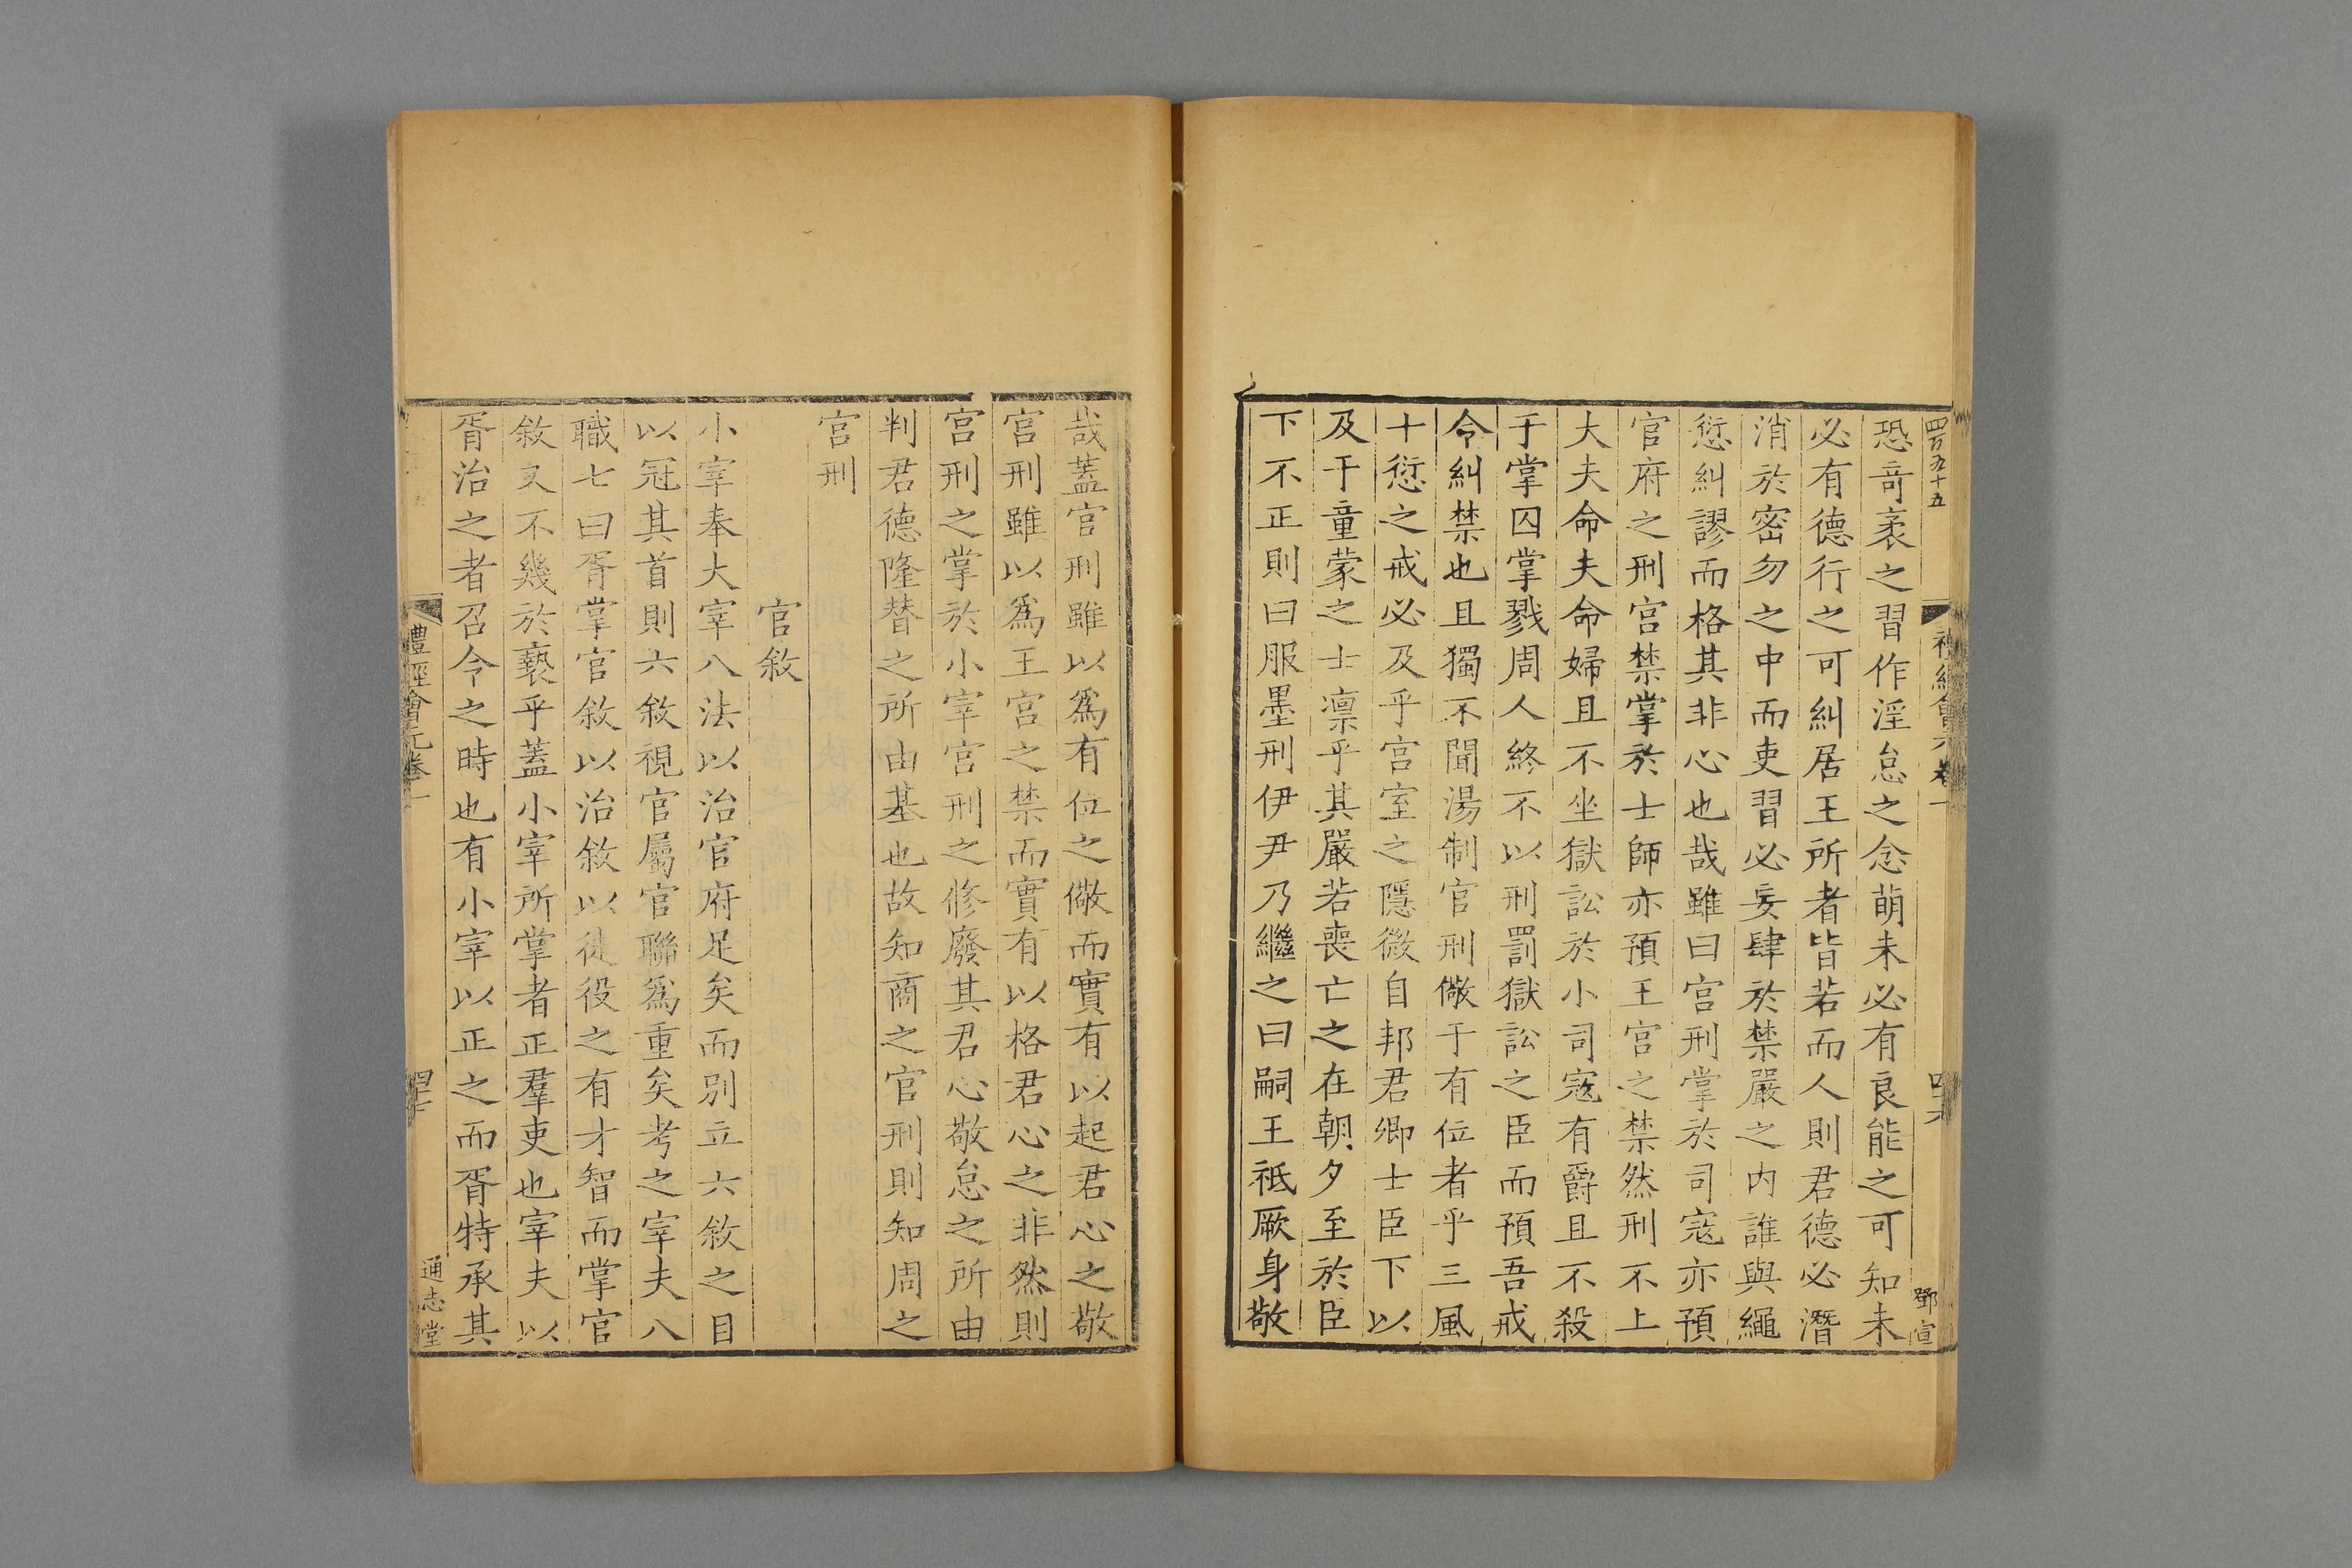 四百五十五
恐奇衺之習作淫怠之念萌未必有良能之可知未
必有德行之可糾居王所者皆若而人則君德必潛
消於密勿之中而吏習必妄肆於禁嚴之内誰與繩
愆糾謬而格其非心也哉雖曰宫刑掌於司寇亦預
官府之刑宫禁掌於士師亦預王宫之禁然刑不上
大夫命夫命婦且不坐獄訟於小司寇有爵且不殺
于掌囚掌戮周人終不以刑罰獄訟之臣而預吾戒
令糾禁也且獨不聞湯制官刑儆于有位者乎三風
十愆之戒必及乎宫室之隱微自邦君卿士臣下以
及于童蒙之士凛乎其嚴若喪亡之在朝夕至於臣
下不正則曰服墨刑伊尹乃繼之曰嗣王祗厥身敬
鄧宣
哉蓋官刑雖以爲有位之儆而實有以起君心之敬
宫刑雖以爲王宫之禁而實有以格君心之非然則
宫刑之掌於小宰宫刑之修廢其君心敬怠之所由
判君德隆替之所由基也故知商之官刑則知周之
宫刑
官敘
小宰奉大宰八法以治官府足矣而别立六敘之目
以冠其首則六敘視官屬官聯爲重矣考之宰夫八
職七曰胥掌官敘以治敘以徒役之有才智而掌官
敘又不幾於褻乎蓋小宰所掌者正羣吏也宰夫以
胥治之者召令之時也有小宰以正之而胥特承其
禮經會元卷一
通志堂